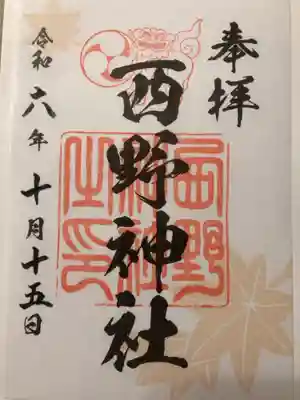 奉拝
西野神社
西野
神社
之印
令和六年十月十五日